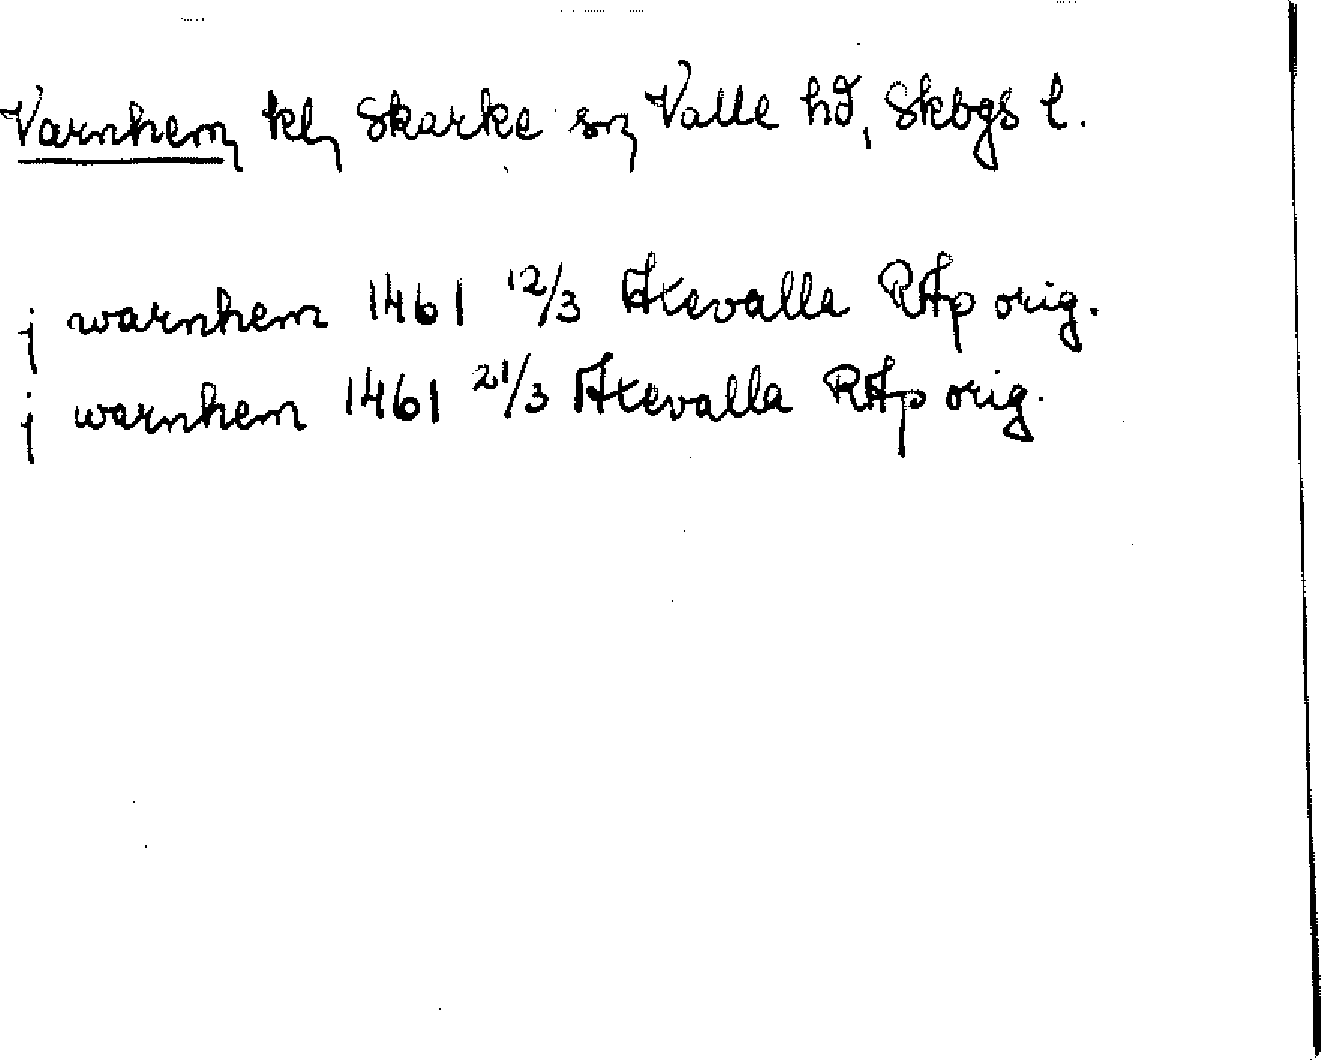 Varnhem, kl, Skarke sn, Valle hd, Skbgs l.
j warnhem 1461 12/3 Axevalla RAp orig.
j warnhem 1461 21/3 Axevalla RAp orig.